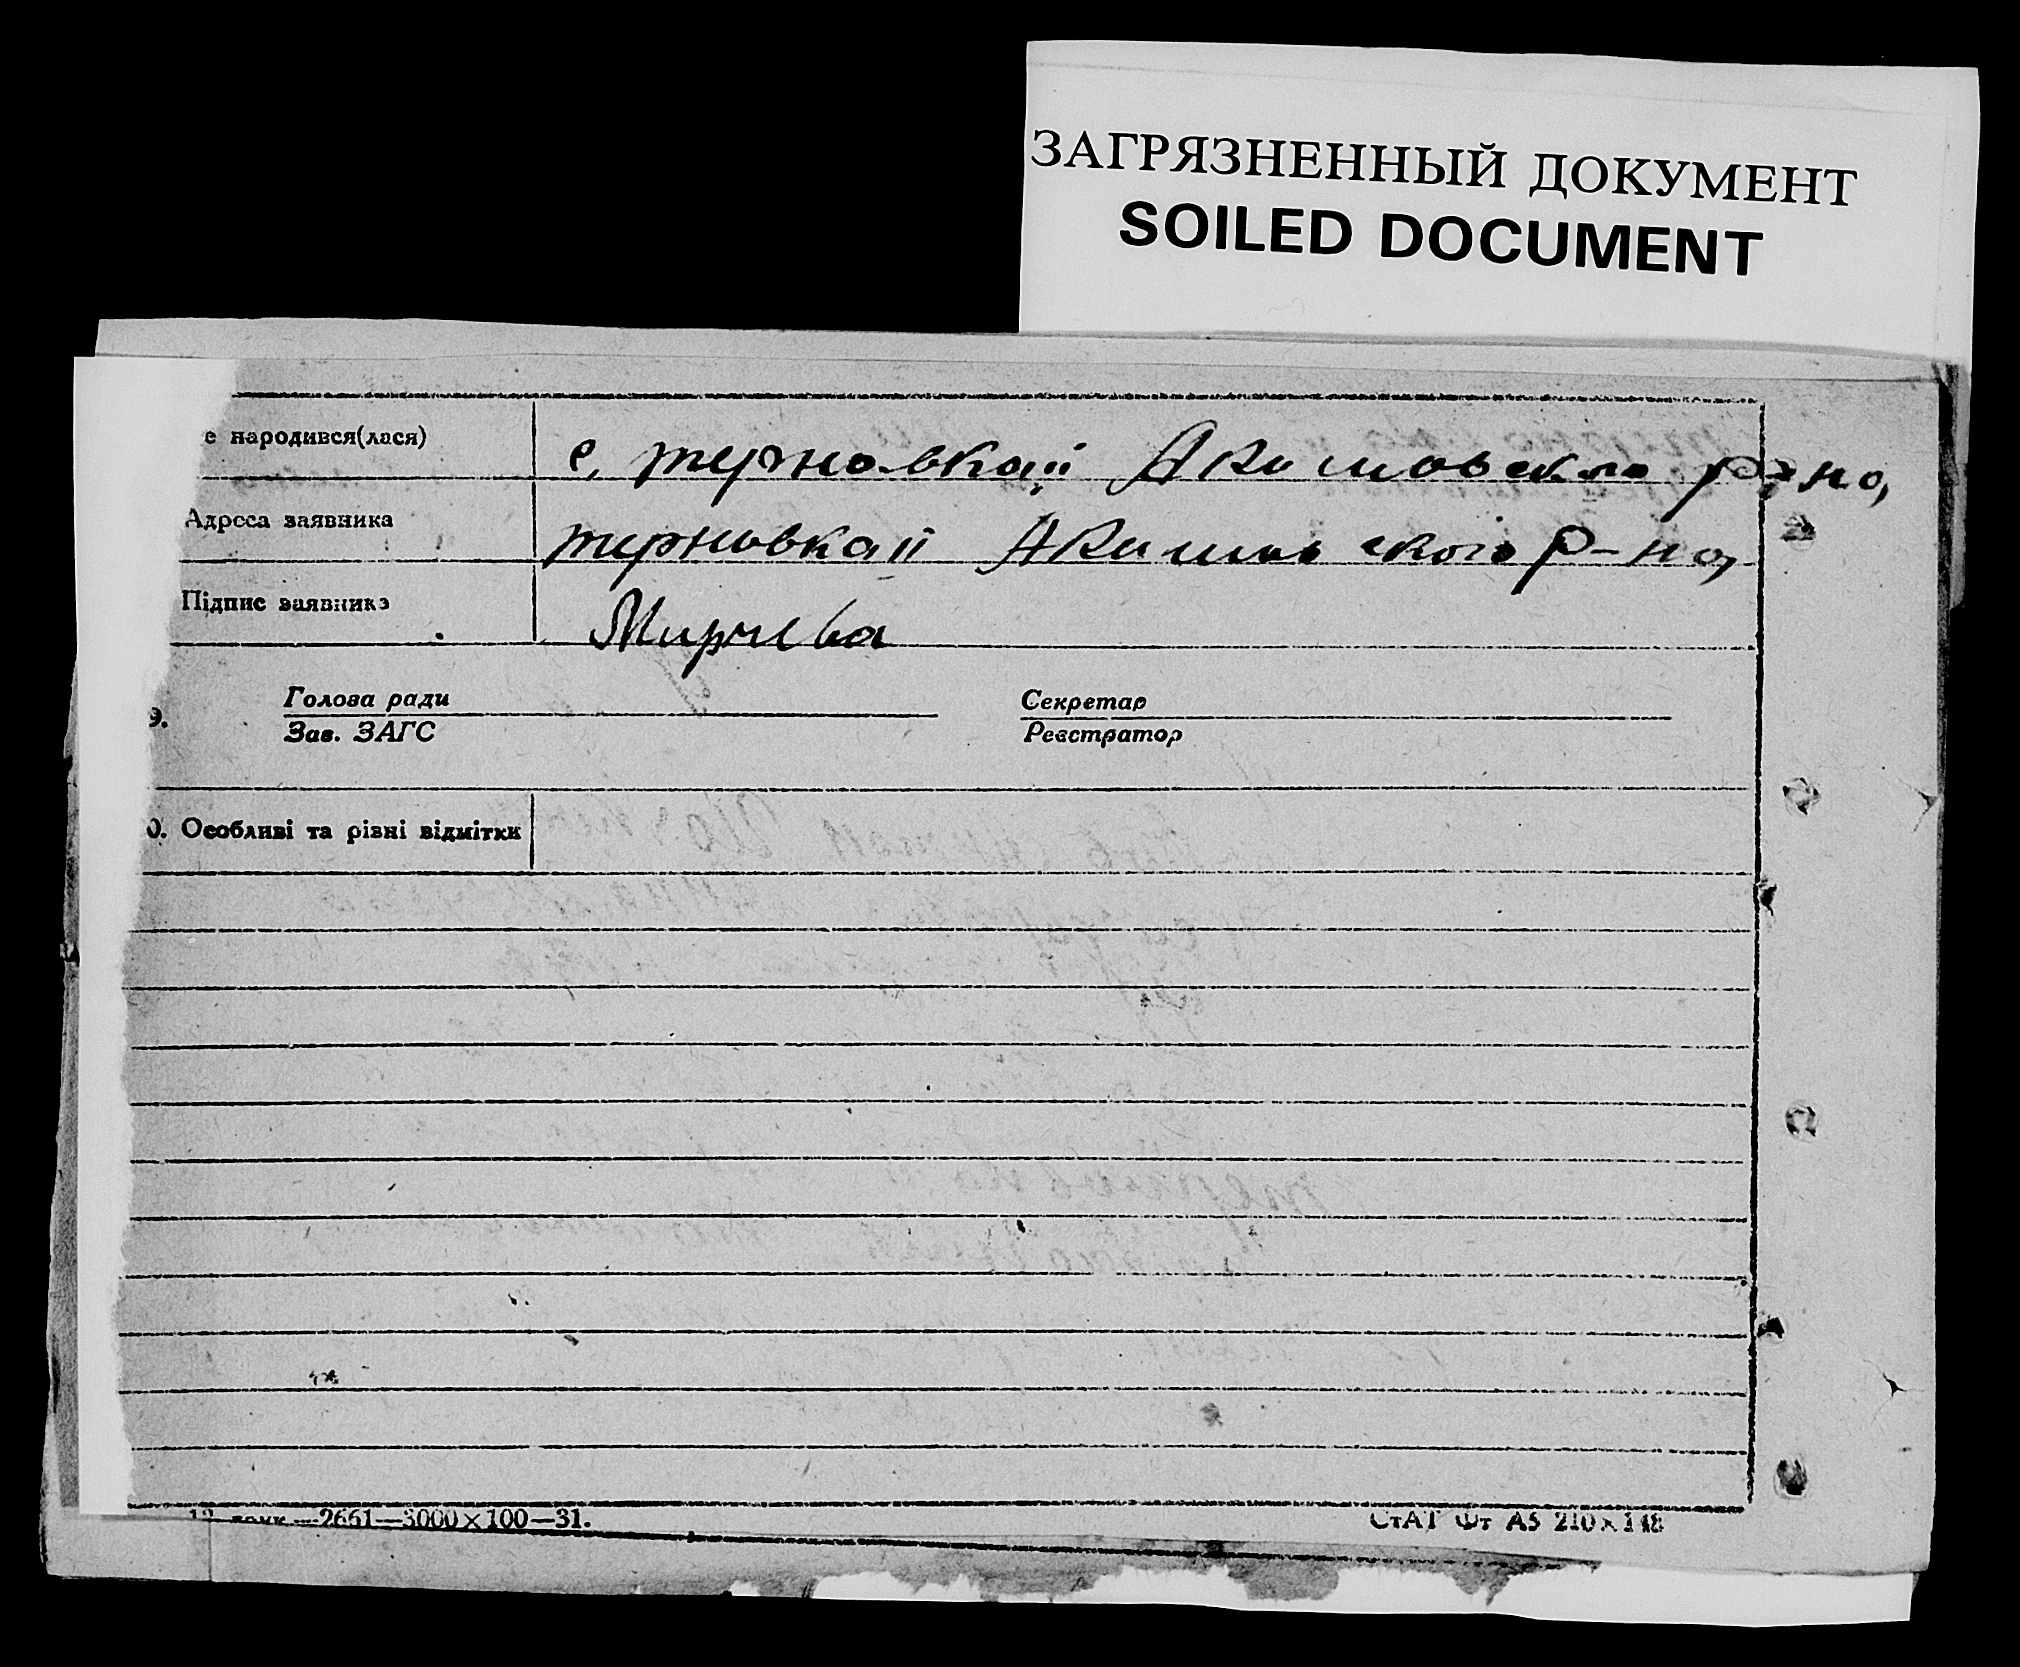 ЗАГРЯЗНЕННЫЙ ДОКУМЕНТ
SOILED DOCUMENT
е народився(лася)
с, терновкаїї Акимовского р-но,
Адреса заявника
терновкаїї Акимовского р-но,
Підпис заявника
Мирчева
9. Голова ради Секретар
Зав. ЗАГС Реєстратор
0. Особливі та різні відмітки
12 друк.—2661—3000×100—31. СтАТ Фт А5 210×148